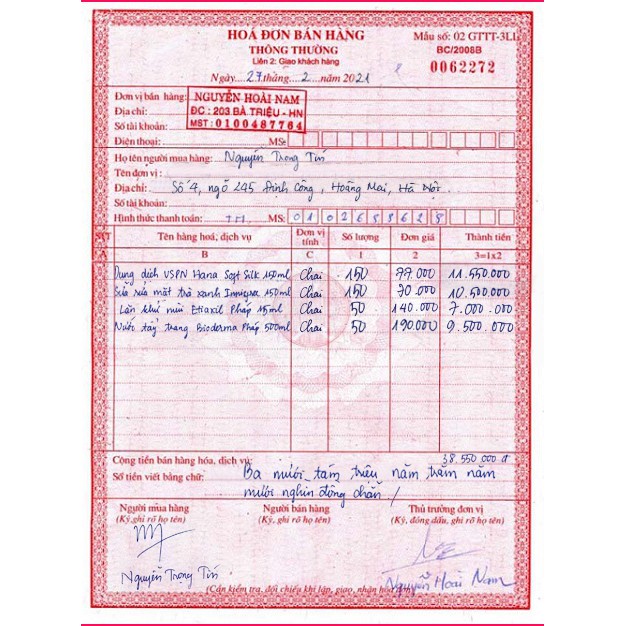 HOÁ ĐƠN BÁN HÀNG
THÔNG THƯỜNG
Liên 2: Giao khách hàng
Mẫu số: 02 GTTT-3LL
BC/2008B
0062272
Ngày 27 tháng 2 năm 2021
Đơn vị bán hàng: NGUYỄN HOÀI NAM
Địa chỉ: ĐC : 203 BÀ TRIỆU - HN
Số tài khoản: MST : 0100487764
Điện thoại: MS:
Họ tên người mua hàng: Nguyễn Trọng Tín
Tên đơn vị:
Địa chỉ: Số 4, ngõ 245 Định Công, Hoàng Mai, Hà Nội.
Số tài khoản:
Hình thức thanh toán: TM. MS:
STT Tên hàng hoá, dịch vụ Đơn vị tính Số lượng Đơn giá Thành tiền
A B C 1 2 3=1x2
Dung dịch VSPN Hana Soft Silk 150ml Chai 150 77.000 11.550.000
Sữa rửa mặt trà xanh 150ml Chai 150 70.000 10.500.000
Lăn khử mùi Etiaxil Pháp 15ml Chai 50 140.000 7.000.000
Nước tẩy trang Bioderma Pháp 500ml Chai 50 190.000 9.500.000
Cộng tiền bán hàng hóa, dịch vụ: 38.550.000 đ
Số tiền viết bằng chữ: Ba mươi tám triệu năm trăm năm
mươi nghìn đồng chẵn /
Người mua hàng Người bán hàng Thủ trưởng đơn vị
(Ký, ghi rõ họ tên) (Ký, ghi rõ họ tên) (Ký, đóng dấu, ghi rõ họ tên)
Nguyễn Trọng Tín Nguyễn Hoài Nam
(Cần kiểm tra, đối chiếu khi lập, giao, nhận hóa đơn)